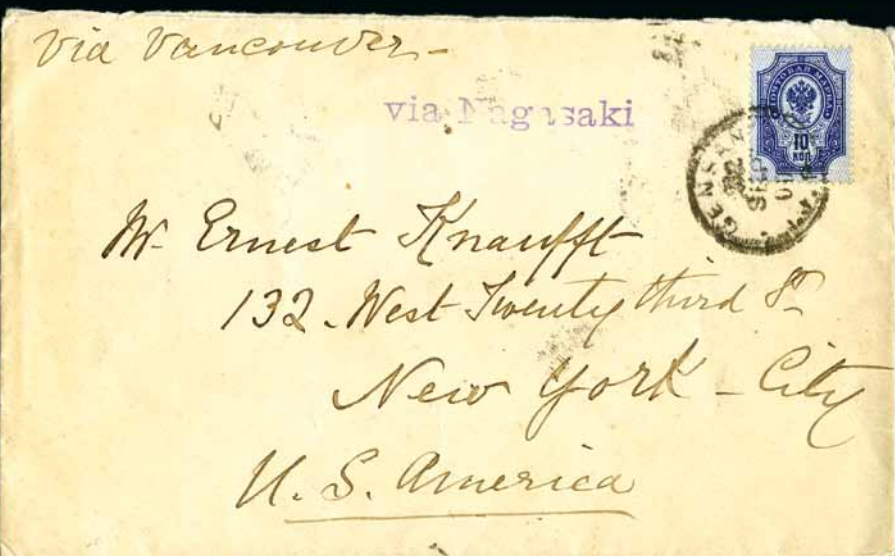 Via Vancouver -
via Nagasaki
ПОЧТОВАЯ МАРКА
10
КОП
GENSAN
22
SEP
Mr. Ernest Knaufft
132. West Twenty third St
New York - City
U. S. America